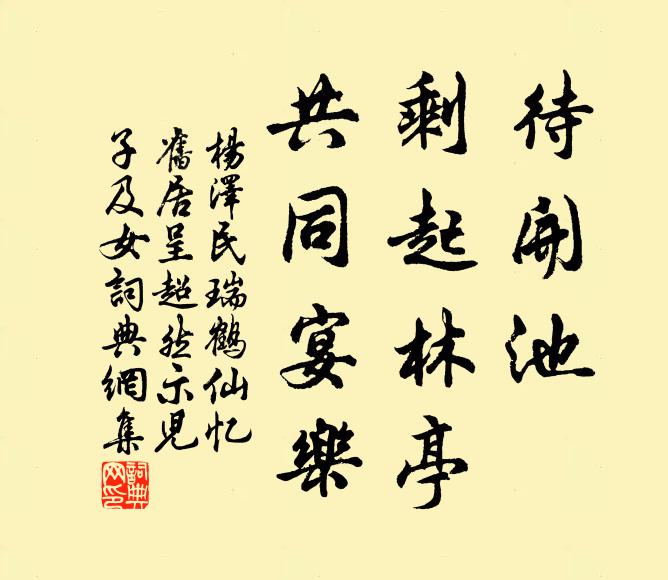 待開池
剩起林亭
共同宴樂
楊澤民瑞鶴仙忆
舊居呈超然示児
子及女詞典網集
詞典
网印